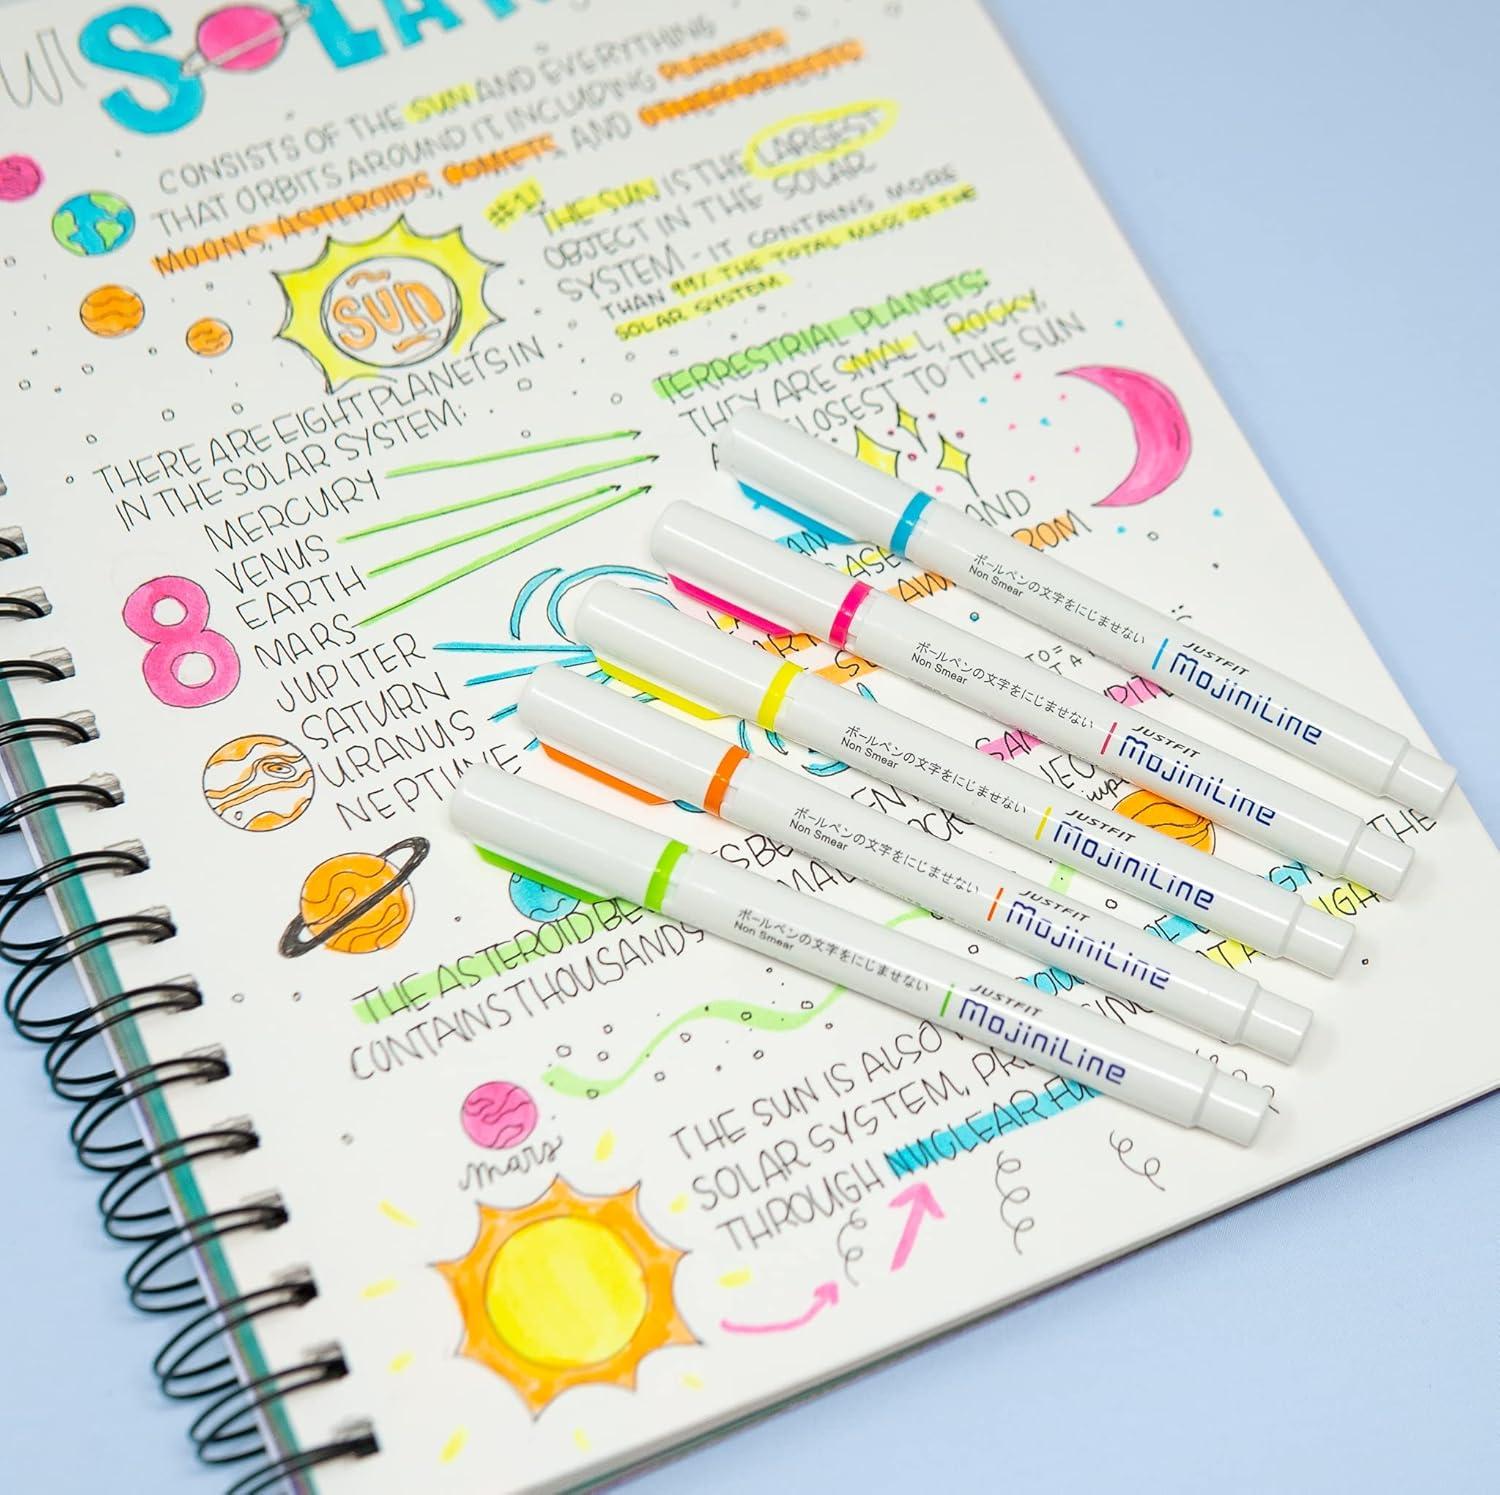 SOLAR
CONSISTS OF THE SUN AND EVERYTHING
THAT ORBITS AROUND IT INCLUDING PLANETS,
MOONS, ASTEROIDS, COMETS, AND OTHER OBJECTS
SUN
#1!
THE SUN IS THE LARGEST
OBJECT IN THE SOLAR
SYSTEM - IT CONTAINS MORE
THAN 99% THE TOTAL MASS OF THE
SOLAR SYSTEM
TERRESTRIAL PLANETS:
THEY ARE SMALL, ROCKY,
CLOSEST TO THE SUN
AND
ROM
THERE ARE EIGHT PLANETS IN
IN THE SOLAR SYSTEM:
8
MERCURY
VENUS
EARTH
MARS
JUPITER
SATURN
URANUS
NEPTUNE
THE ASTEROID BE
CONTAINS THOUSANDS
mars
THE SUN IS ALSO
SOLAR SYSTEM, PR
THROUGH NUCLEAR FU
THE
ボールペンの文字をにじませない
Non Smear
JUSTFIT
MojiniLine
ボールペンの文字をにじませない
Non Smear
JUSTFIT
MojiniLine
ボールペンの文字をにじませない
Non Smear
JUSTFIT
MojiniLine
ボールペンの文字をにじませない
Non Smear
JUSTFIT
MojiniLine
ボールペンの文字をにじませない
Non Smear
JUSTFIT
MojiniLine